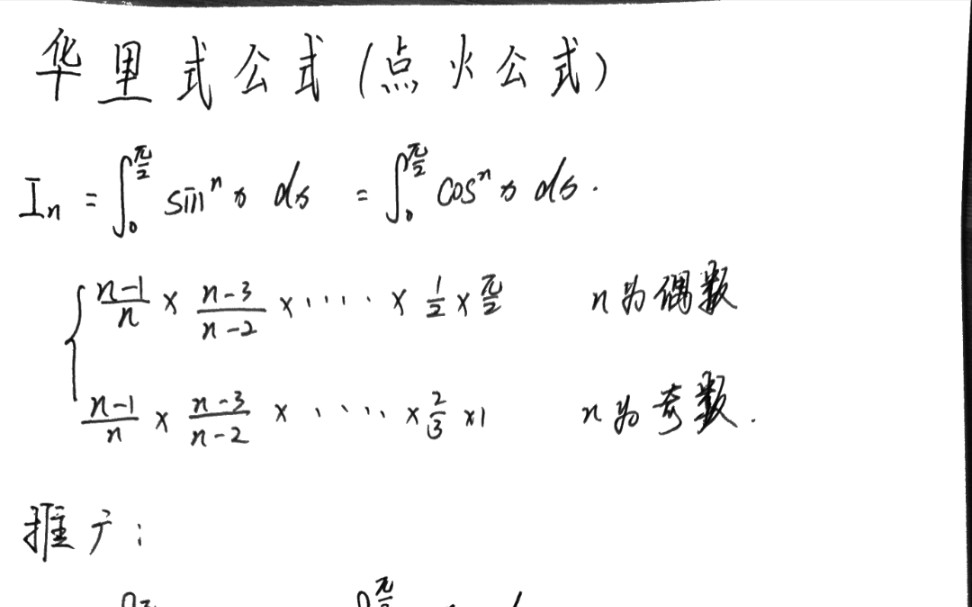 华里式公式(点火公式)
Iₙ = ∫₀^(π/2) sinⁿx dx = ∫₀^(π/2) cosⁿx dx.
{ (n-1)/n × (n-3)/(n-2) × ····· × 1/2 × π/2 n为偶数
(n-1)/n × (n-3)/(n-2) × ····· × 2/3 ×1 n为奇数.
推广: